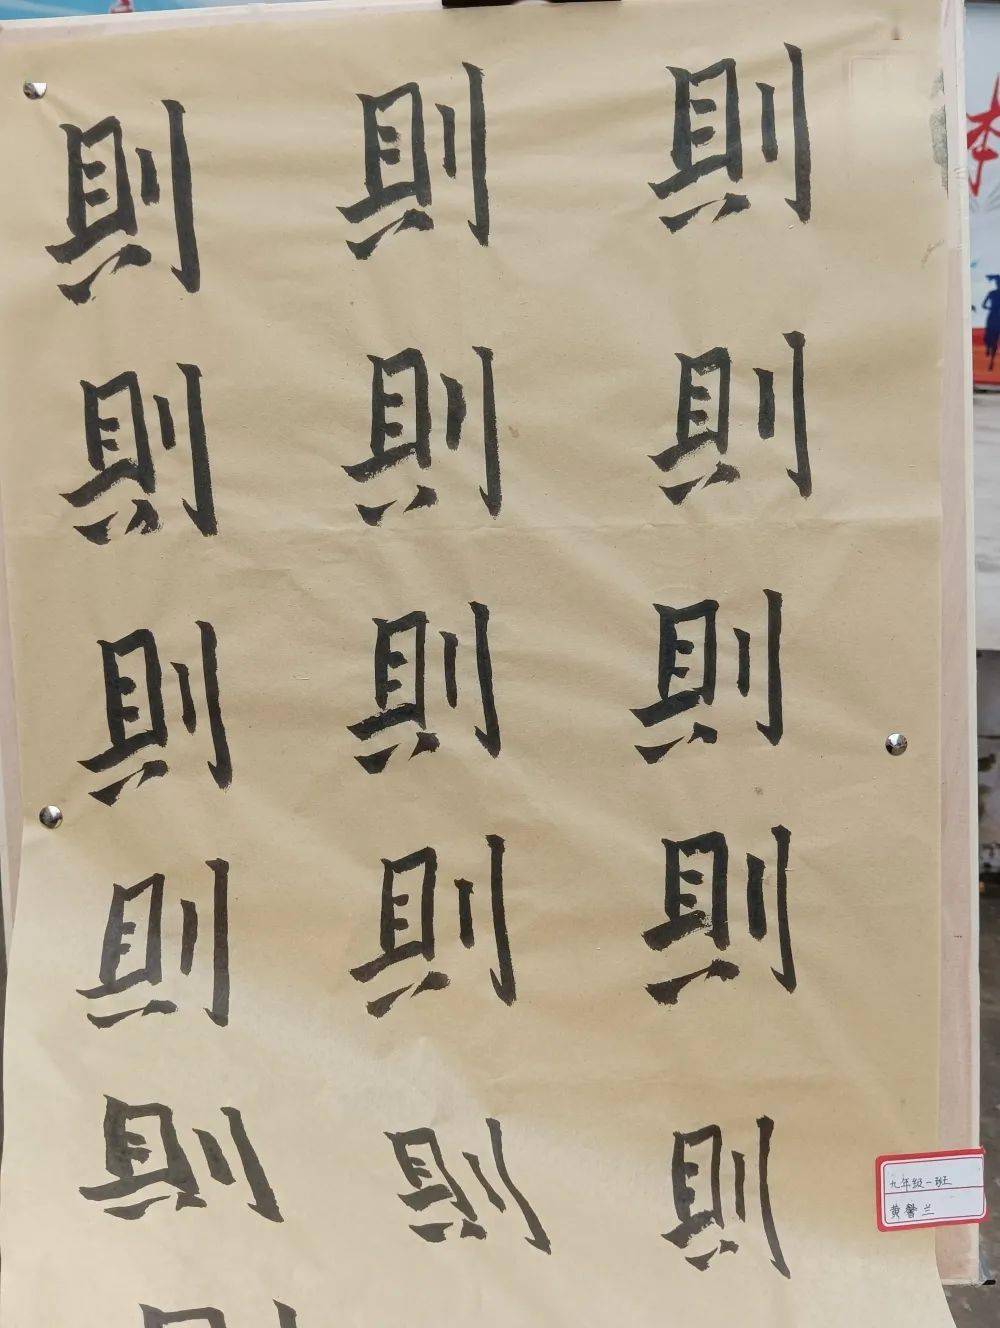 則 則 則
則 則 則
則 則 則
則 則 則
則 則 則
九年级一班
黄馨兰